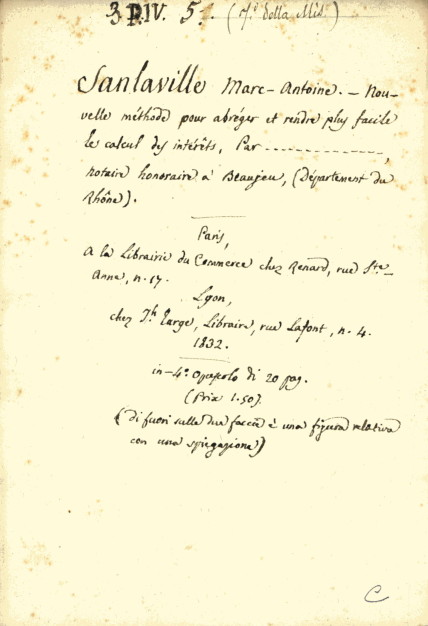 3 D.IV. 5. (Mi della Mis.)
Sanlaville Marc-Antoine. - Nou-
velle méthode pour abréger et rendre plus facile
le calcul des intérêts, Par - - - - - - - - - - - - - - ,
notaire honoraire à Beaujeu, (Département du
Rhône).
Paris,
A la Librairie du Commerce chez Renard, rue Ste-
Anne, n. 17.
Lyon,
chez Jh Targe, Libraire, rue Lafont, n. 4.
1832.
in-4° opuscolo di 20 pag.
(Prix 1.50)
(di fuori sulle due faccie è una figura relativa
con una spiegazione)
C